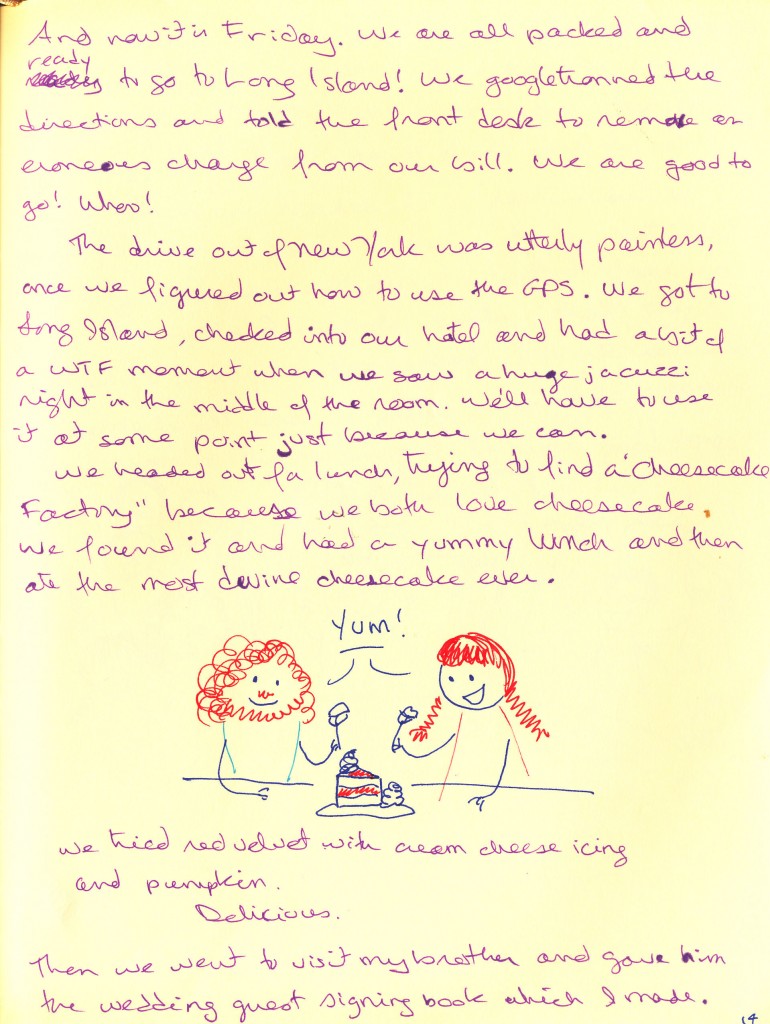 And now it is Friday. We are all packed and
ready
to go to Long Island! We googletionned the
directions and told the front desk to remove an
eroneous charge from our bill. We are good to
go! Whoo!
The drive out of New York was utterly painless,
once we figured out how to use the GPS. We got to
Long Island, checked into our hotel and had a bit of
a WTF moment when we saw a huge jacuzzi
right in the middle of the room. We'll have to use
it at some point just because we can.
We headed out for lunch, trying to find a "Cheesecake
Factory" because we both love cheesecake.
We found it and had a yummy lunch and then
ate the most divine cheesecake ever.
Yum!
We tried red velvet with cream cheese icing
and pumpkin.
Delicious.
Then we went to visit my brother and gave him
the wedding guest signing book which I made.
14